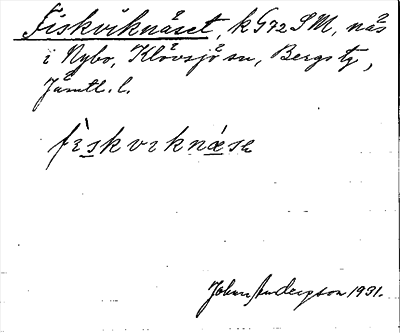 Fiskviknäset, k G72 SM, näs
i Nybo, Klövsjö sn, Bergs tg,
Jämtl. l.
fìskviknæ̀sə
Johan Anderson 1931.